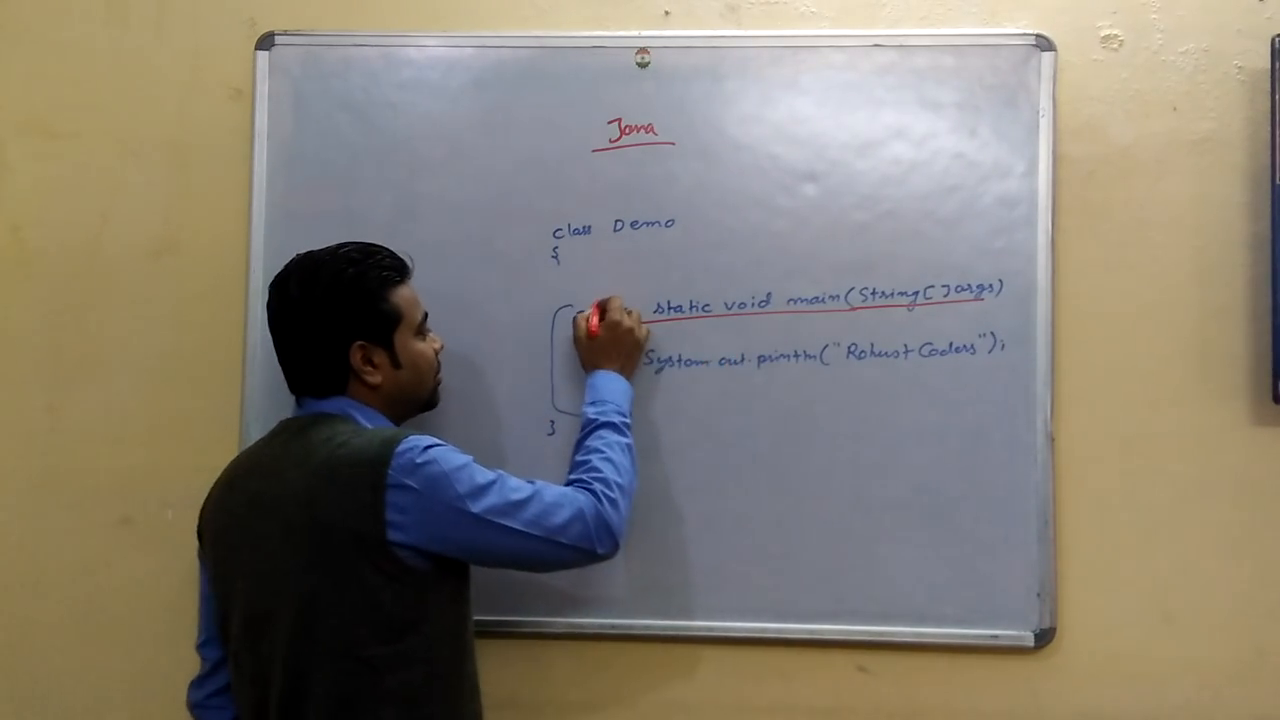 Java
class Demo
{
static void main(String[] args)
System.out.println("Robust Coders");
}